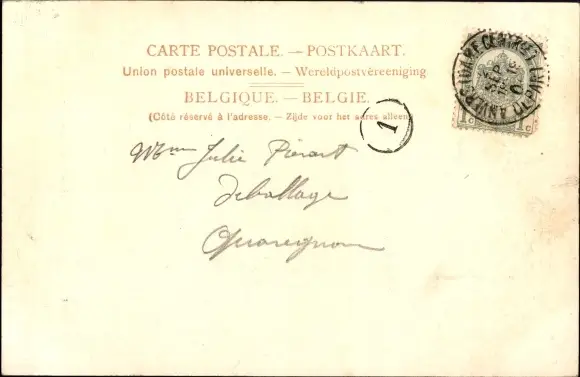 CARTE POSTALE. — POSTKAART.
Union postale universelle. — Wereldpostvereeniging
BELGIQUE. — BELGIE.
(Côté réservé à l'adresse. — Zijde voor het adres alleen)
1
Mme Julie Piérart
Deballage
Quaregnon
1c 1c